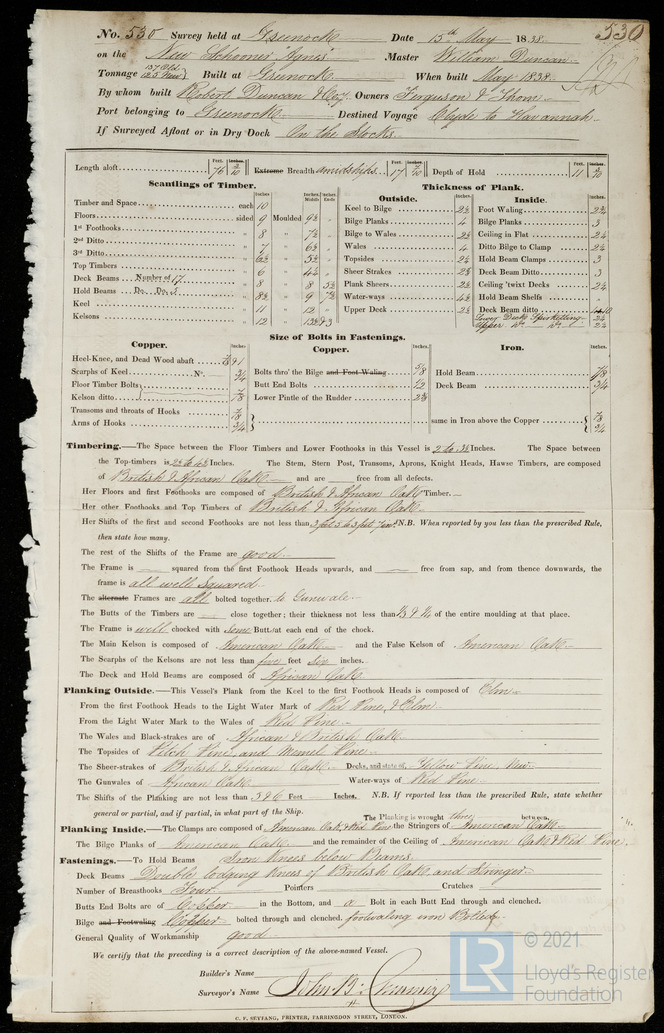 No. 530 Survey held at Greenock Date 15th May 1838. 530
on the New Schooner "Agnes" Master William Duncan
Tonnage 137 Old Built at Greenock When built May 1838
By whom built Robert Duncan & Coy. Owners Ferguson & Thom
Port belonging to Greenock Destined Voyage Clyde to Havannah
If Surveyed Afloat or in Dry Dock On the Stocks
Length aloft Feet. 76 Inches. Extreme Breadth amidships Feet. 17 Inches. Depth of Hold Feet. 11 Inches.
Scantlings of Timber. Thickness of Plank.
Inches. Inches. Middle Inches. Ends Outside. Inches. Inside. Inches.
Timber and Space each 10 Keel to Bilge 2½ Foot Waling
Floors sided 9 Moulded 9½ Bilge Planks 4 Bilge Planks 3
1st Foothooks " 8 " 7½ Bilge to Wales 2½ Ceiling in Flat 2½
2nd Ditto " 7 " 6½ Wales 4 Ditto Bilge to Clamp 2½
3rd Ditto " 6½ " 5½ Topsides 2½ Hold Beam Clamps 3
Top Timbers " 6 " 4½ Sheer Strakes 2½ Deck Beam Ditto 3
Deck Beams Number of 17 " 8 " 8 5½ Plank Sheers 2½ Ceiling 'twixt Decks 2½
Hold Beams Do. Do. 5 " 8½ " 9 7½ Water-ways 4½ Hold Beam Shelfs
Keel " 11 " 12 Upper Deck 2½ Deck Beam ditto
Kelsons " 12 " Lower Deck Spirketting 2½
Upper Do. Do. 2½
Size of Bolts in Fastenings.
Copper. Inches. Copper. Inches. Iron. Inches.
Heel-Knee, and Dead Wood abaft ⅞ & 1 Bolts thro' the Bilge and Foot Waling ⅝ Hold Beam ⅞
Scarphs of Keel No. ¾ Butt End Bolts ½ Deck Beam ¾
Floor Timber Bolts Lower Pintle of the Rudder 2⅜
Kelson ditto ⅞
Transoms and throats of Hooks ⅞ same in Iron above the Copper ⅞
Arms of Hooks ¾ ¾
Timbering.—The Space between the Floor Timbers and Lower Foothooks in this Vessel is 2 to 3½ Inches. The Space between
the Top-timbers is 2½ to 4½ Inches. The Stem, Stern Post, Transoms, Aprons, Knight Heads, Hawse Timbers, are composed
of British & African Oak and are free from all defects.
Her Floors and first Foothooks are composed of British & African Oak Timber.
Her other Foothooks and Top Timbers of British & African Oak
Her Shifts of the first and second Foothooks are not less than 3 feet 5 to 3 feet 7 in. N.B. When reported by you less than the prescribed Rule,
then state how many.
The rest of the Shifts of the Frame are good
The Frame is squared from the first Foothook Heads upwards, and free from sap, and from thence downwards, the
frame is all well squared
The alternate Frames are all bolted together to Gunwale
The Butts of the Timbers are close together; their thickness not less than ⅓ & ¼ of the entire moulding at that place.
The Frame is well chocked with some Butt at each end of the chock.
The Main Kelson is composed of American Oak and the False Kelson of American Oak
The Scarphs of the Kelsons are not less than five feet six inches.
The Deck and Hold Beams are composed of African Oak
Planking Outside.—This Vessel's Plank from the Keel to the first Foothook Heads is composed of Elm
From the first Foothook Heads to the Light Water Mark of Red Pine, & Elm
From the Light Water Mark to the Wales of Red Pine
The Wales and Black-strakes are of African & British Oak
The Topsides of Pitch Pine, and Memel Pine
The Sheer-strakes of British & African Oak Decks, and state of, Yellow Pine, New
The Gunwales of African Oak Water-ways of Red Pine
The Shifts of the Planking are not less than 5 & 6 Feet Inches. N.B. If reported less than the prescribed Rule, state whether
general or partial, and if partial, in what part of the Ship. The Planking is wrought three between.
Planking Inside.—The Clamps are composed of American Oak & Red Pine the Stringers of American Oak
The Bilge Planks of American Oak and the remainder of the Ceiling of American Oak & Red Pine
Fastenings.—To Hold Beams Iron knees below Beams
Deck Beams Double lodging knees of British Oak and Stringer
Number of Breasthooks Four Pointers Crutches
Butts End Bolts are of Copper in the Bottom, and a Bolt in each Butt End through and clenched.
Bilge and Footwaling Copper bolted through and clenched. footwaling iron Bolted
General Quality of Workmanship good
We certify that the preceding is a correct description of the above-named Vessel.
Builder's Name
Surveyor's Name John B.
C. F. SEYFANG, PRINTER, FARRINGDON STREET, LONDON.
LR © 2021
Lloyd's Register
Foundation